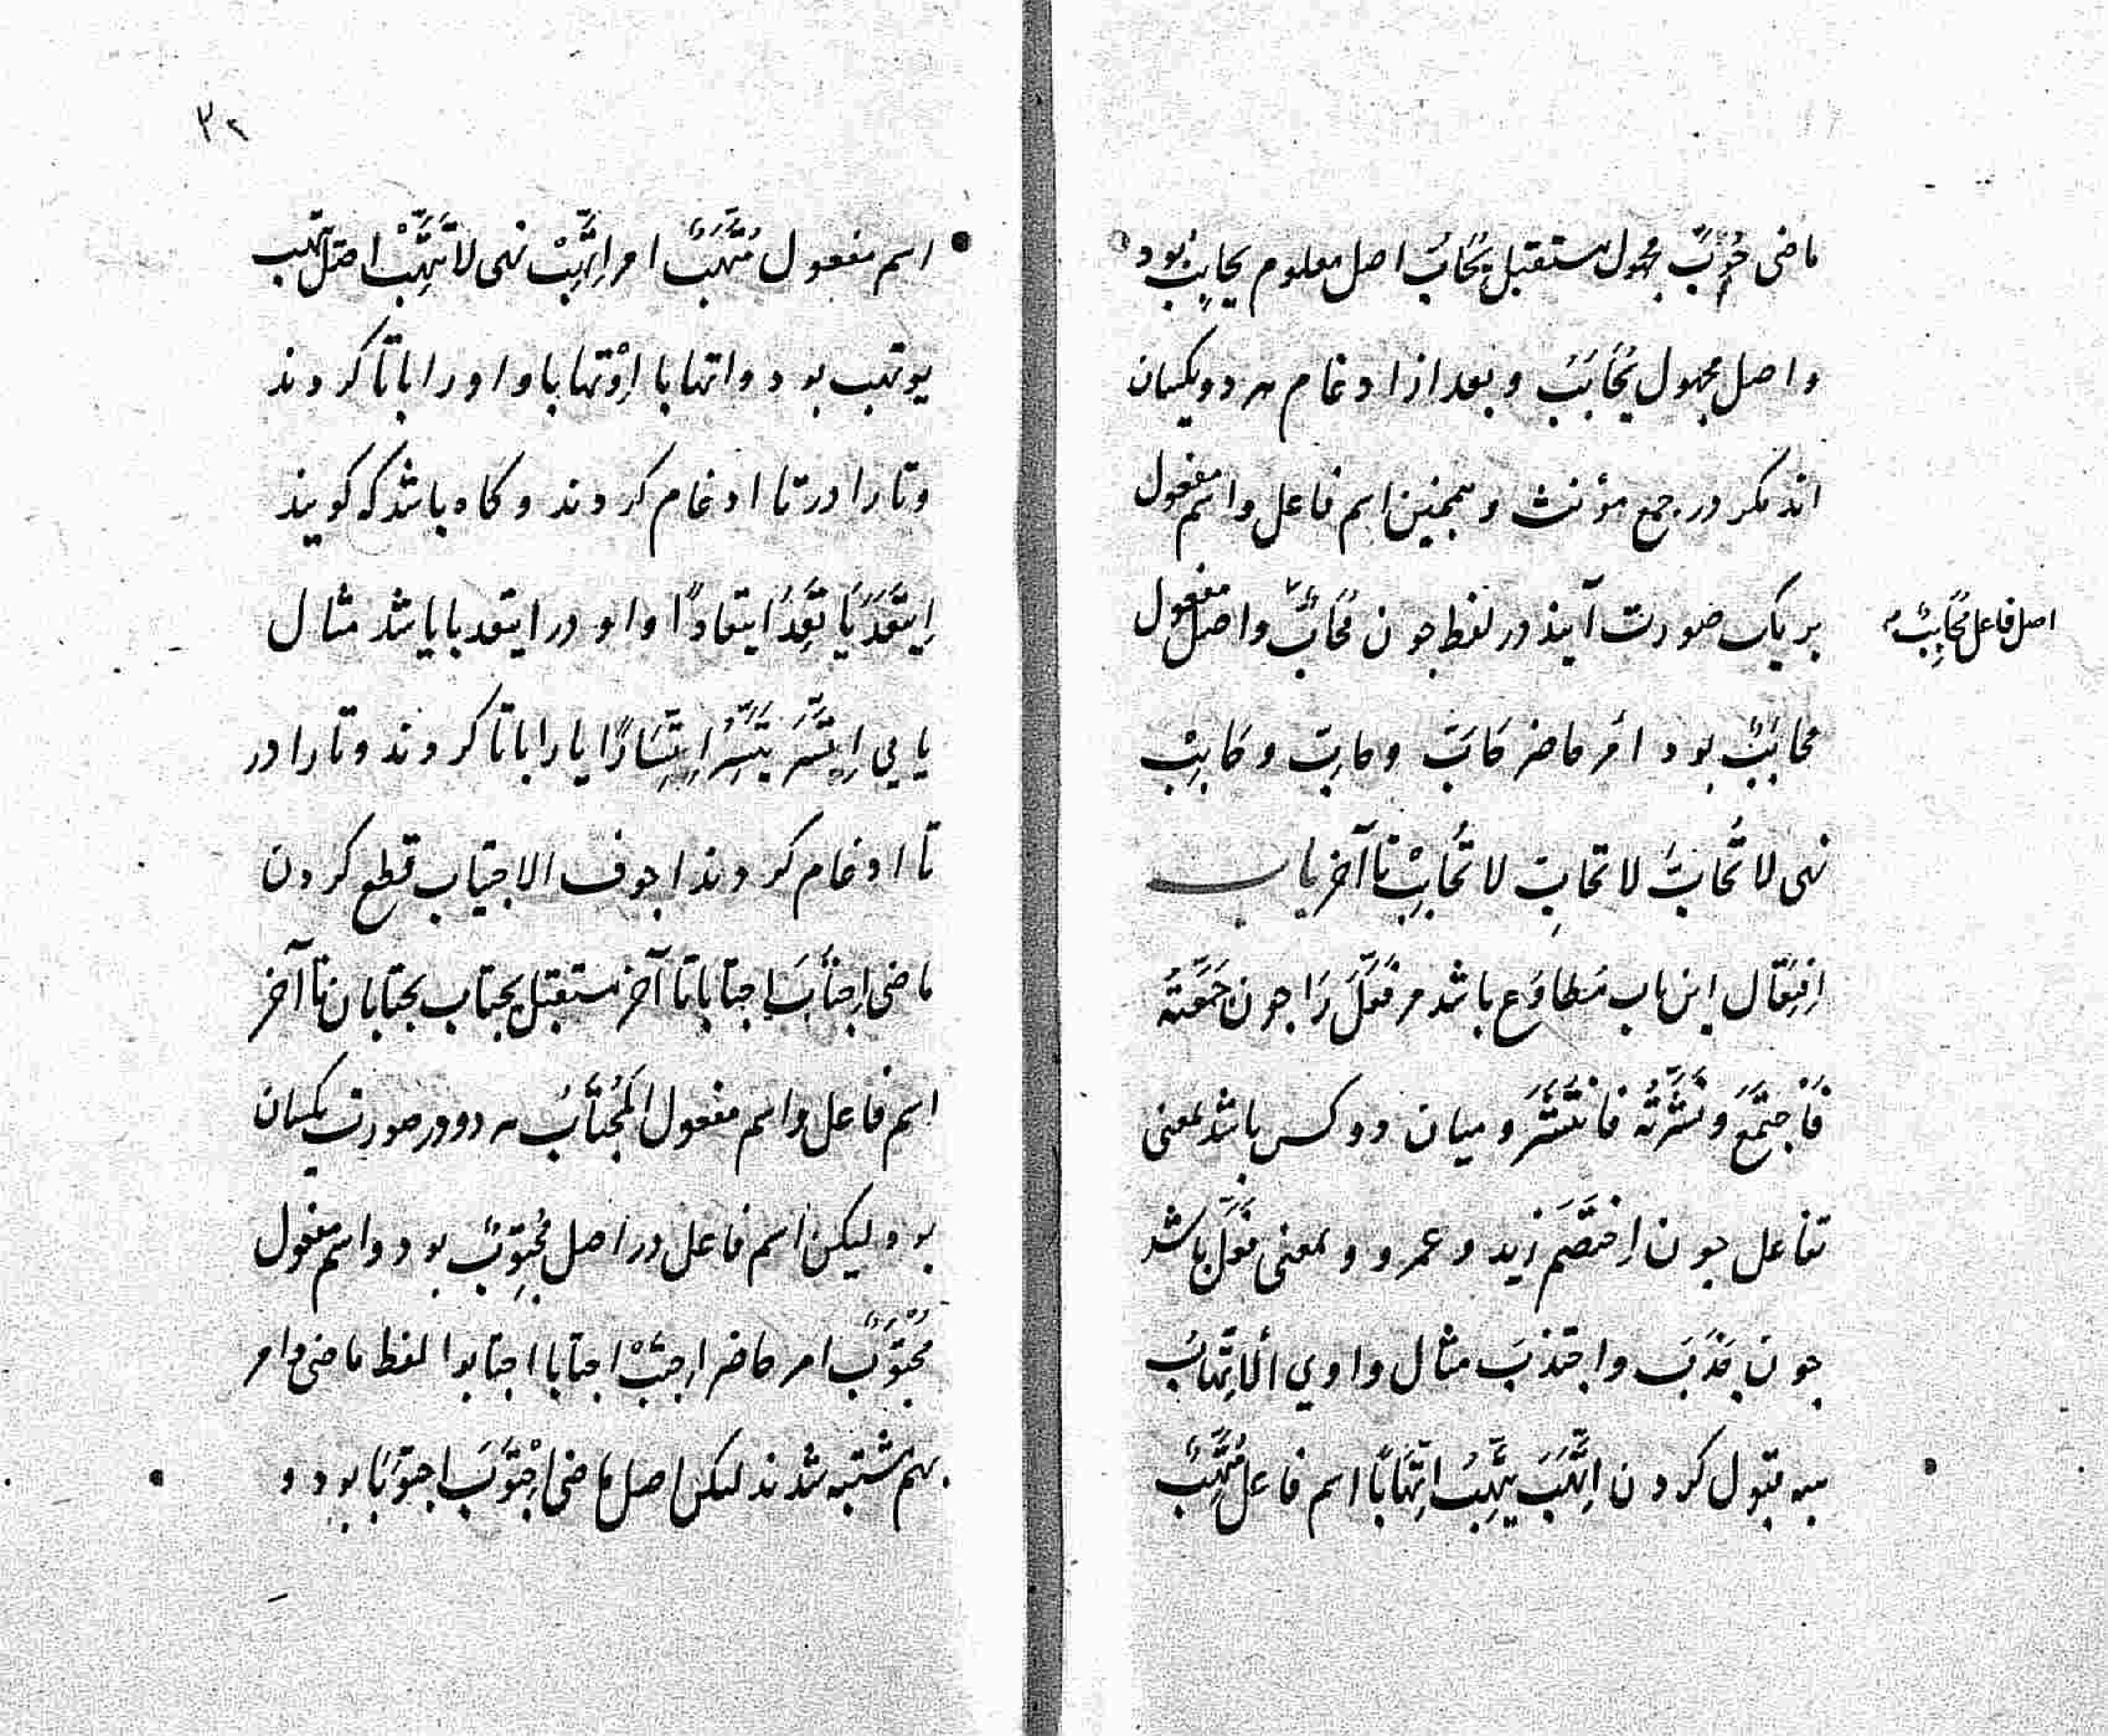 ماضی حُوبَّ مجهول مستقبل یُحَابُّ اصل معلوم یحابِبُ بود
و اصل مجهول یُحَابَبُ و بعد از ادغام هر دو یکسان
اند مکر در جمع مؤنث و همجنین اسم فاعل و اسم مفعول
بر یک صورت آیند در لفظ جون مُحَابٌّ و اصل مفعول
اصل فاعل مُحَابِبٌ
محابَبٌ بود امر حاضر حَابَّ و حابِّ و حَابِبْ
نهی لا تُحَابَّ لا تحابِّ لا تُحَابِبْ تا آخر باب
اِفتِعَال این باب مُطاوِع باشد مر فَعَّلَ رَا جون جَمَّعْتُهُ
فَاجتَمَعَ و نَشَّرْتُهُ فانتَشَرَ و میان دو کس باشد بمعنی
تفاعل جون اِختَصَمَ زید و عمرو و بمعنی فَعَلَ باشد
جون جَذَبَ و اجتذبَ مثال واوي الْاِتِّهابُ
هبه قبول کردن اِتَّهَبَ یتَّهِبُ اِتِّهَابًا اسم فاعل مُتَّهِبٌ
۳۲
اسم مفعول مُتَّهَبٌ امر اِتَّهِبْ نهی لا تَتَّهِبْ اصل یتَّهب
یوتهب بود و اتهابا اِوْتهابا واو را بتا کردند
و تا را در تا ادغام کردند و کاه باشد که کویند
اِیتَعَدَ یَا تَعِدُ اِیتعادًا واو در ایتعد بایا شد مثال
یایی اِیتَسَرَ یتَّسِرُ اِیتِسَارًا یا را باتا کردند و تا را در
تا ادغام کردند اجوف الاجتیاب قطع کردن
ماضی اِجتَابَ اِجتابا تا آخر مستقبل یجتاب یجتابان تا آخر
اسم فاعل و اسم مفعول المُجتَابُ هر دو در صورت یکسان
بود لیکن اسم فاعل در اصل مُجْتَوِبٌ بود و اسم مفعول
مُجْتَوَبٌ امر حاضر اِجتَبْ اجتابا اجتابوا لفظ ماضی و امر
بهم مشتبه شدند لیکن اصل ماضی اِجْتَوَبَ اجتوَبَا بود و